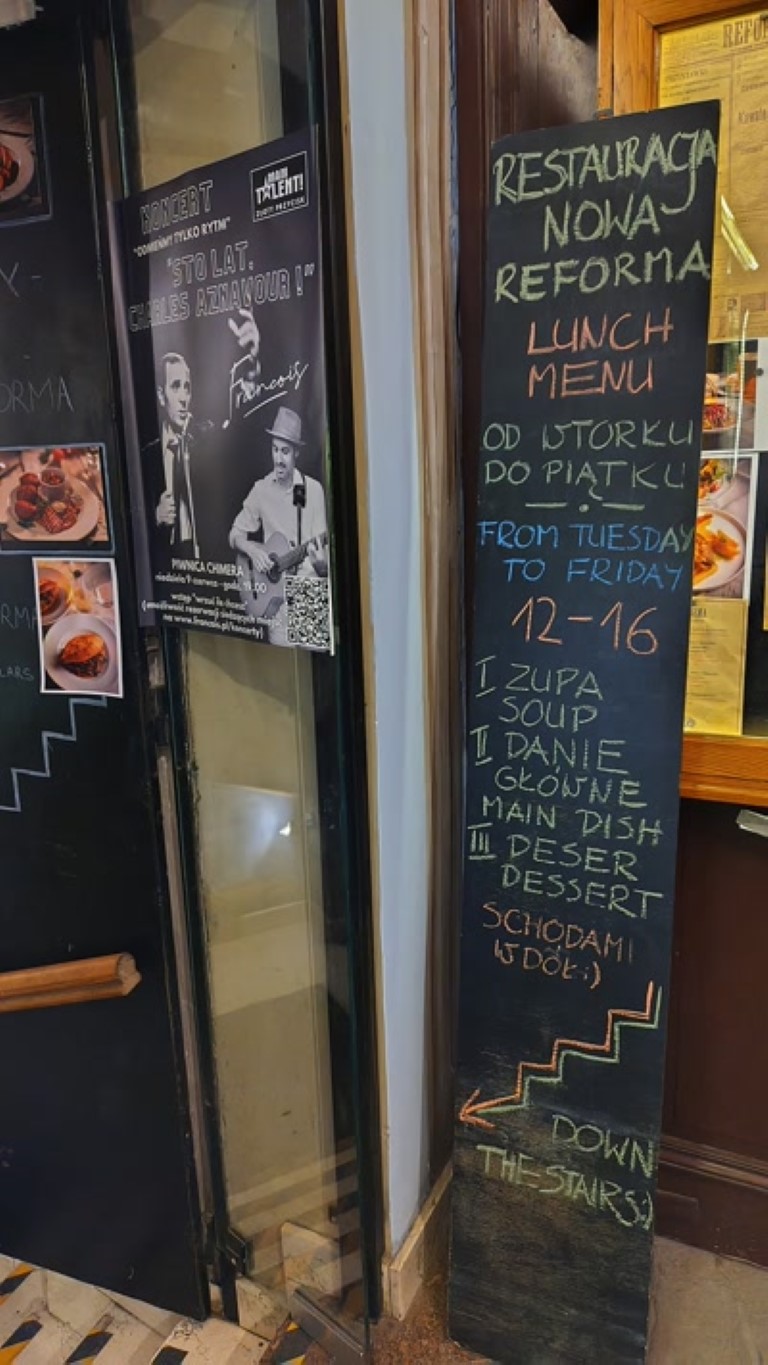 KONCERT
"ODMIENNY TYLKO RYTM"
"STO LAT,
CHARLES AZNAVOUR !"
MAM
TALENT!
ZŁOTY PRZYCISK
Francois
PIWNICA CHIMERA
niedziela 9 czerwca - godz. 19.00
wstęp "wrzuć ile chcesz"
(możliwość rezerwacji siedzących miejsc
na www.francois.pl/koncerty)
ORMA
RMA
LARS
RESTAURACJA
NOWA
REFORMA
LUNCH
MENU
OD WTORKU
DO PIĄTKU
FROM TUESDAY
TO FRIDAY
12-16
I ZUPA
SOUP
II DANIE
GŁÓWNE
MAIN DISH
III DESER
DESSERT
SCHODAMI
W DÓŁ:)
DOWN
THE STAIRS:)
REFO